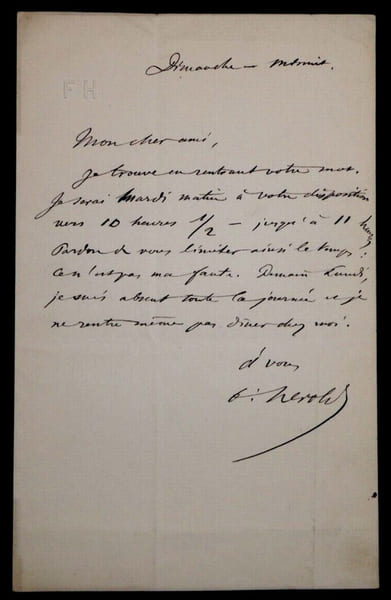 FH
Dimanche – minuit.
Mon cher ami,
Je trouve en rentrant votre mot.
Je serai mardi matin à votre disposition
vers 10 heures 1/2 – jusqu'à 11 heures.
Pardon de vous limiter ainsi le temps.
Ce n'est pas ma faute. Demain Lundi,
je suis absent toute la journée et je
ne rentre même pas dîner chez moi.
à vous
Herold